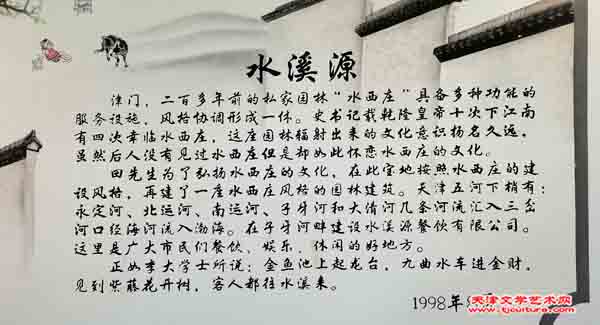 水溪源
津门,二百多年前的私家园林“水西庄”具备多种功能的
服务设施,风格协调形成一体。史书记载乾隆皇帝十次下江南
有四次幸临水西庄,这座园林辐射出来的文化意识扬名久远,
虽然后人没有见过水西庄但是却如此怀恋水西庄的文化。
田先生为了弘扬水西庄的文化,在此宝地按照水西庄的建
设风格,再建了一座水西庄风格的园林建筑。天津五河下梢有:
永定河、北运河、南运河、子牙河和大清河几条河流汇入三岔
河口经海河流入渤海。在子牙河畔建设水溪源餐饮有限公司。
这里是广大市民们餐饮、娱乐,休闲的好地方。
正如李大学士所说:金鱼池上起龙台,九曲水车进金财,
见到紫藤花开树,客人都往水溪来。
1998年
天津文学艺术网
www.tjculture.com